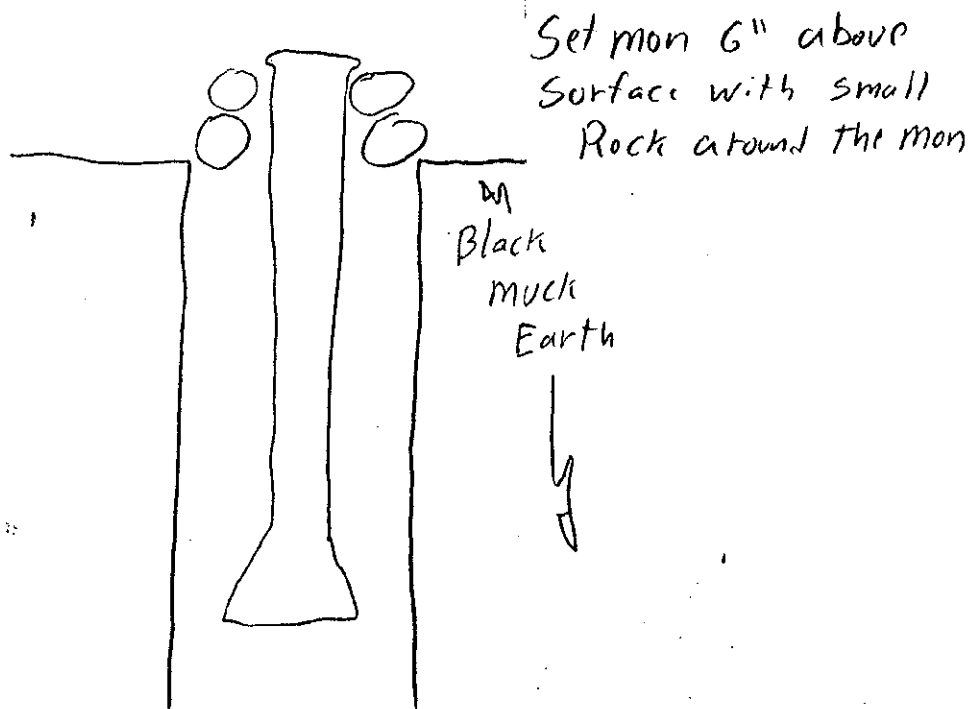 Set mon 6" above
Surface with small
Rock around the mon
Black
muck
Earth